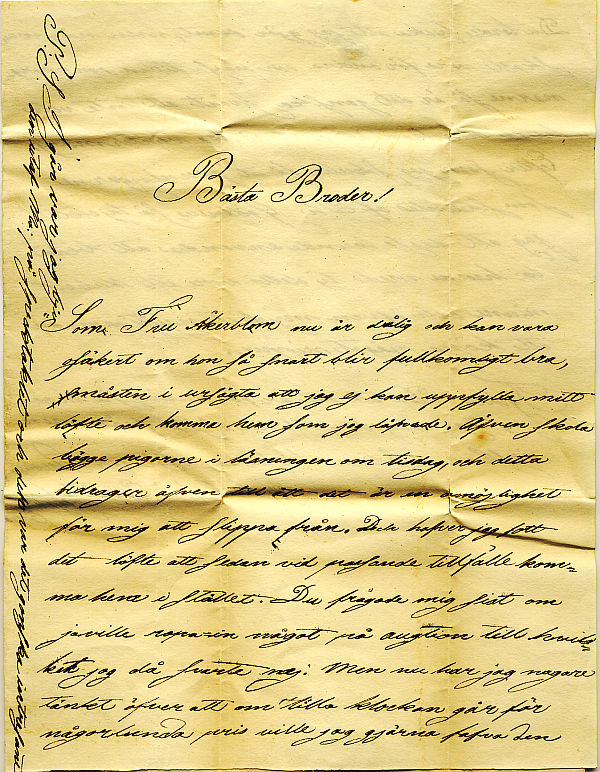 Bästa Broder!
Som Fru Åkerblom nu är dålig och kan vara
osäkert om hon så snart blir fullkomligt bra,
måsten i ursägta att jag ej kan uppfylla mitt
löfte och komma hem som jag lofvade. Äfven skola
begge pigorne i läsningen om tisdag, och detta
bidrager äfven till att det är en omöjlighet
för mig att slippa från. Du hafver jag fått
det löfte att sedan vid passande tillfälle kom=
ma hem i stället. Du frågade mig sist om
ja ville ropa in något på auction till hvil=
ket jag då svarte nej. Men nu har jag nagare
tänkt öfver att om lilla klockan går för
någorlunda pris ville jag gjärna hafva den
P.S. I går var jag
på spektaklet och det var ett ganska